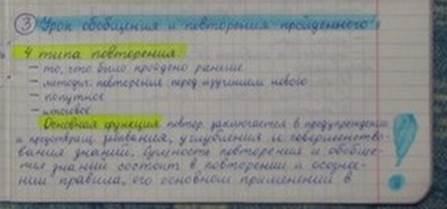 ③ Урок обобщения и повторения пройденного!
4 типа повторения:
– то, что было пройдено раньше
– методич. повторения перед изучением нового
– попутное
– итоговое
Основная функция повтор. заключается в предупреждении
и предотвращ. забывания, углубления и совершенство-
вания знаний. Сущность повторения и обобще-
ния знаний состоит в повторении и осозна-
нии правила, его основном применении в